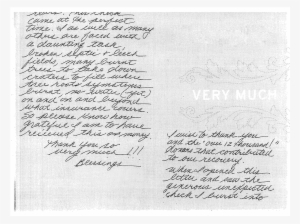 came at the perfect
time. I as well as many
others are faced with
a daunting task.
broken septic & leech
fields, many burnt
trees to take down
craters to fill where
tree roots
burnt, no water (yet)
on and on and beyond
what insurance covers.
So please know how
grateful I am to have
received this money.
Thank you so
very much!!!
Blessings
VERY MUCH
I wish to thank you
and the "over 12 thousand!"
donors that contributed
to our recovery.
When I opened this
letter and saw the
generous unexpected
check I burst into